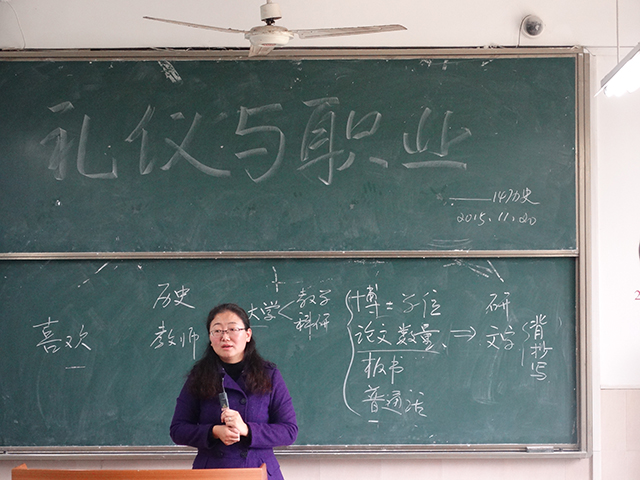 礼仪与职业
——14历史
2015.11.20
喜欢
历史
教师
大学
教学
科研
学位
论文数量
板书
普通话
研
文字
背
抄
写
2